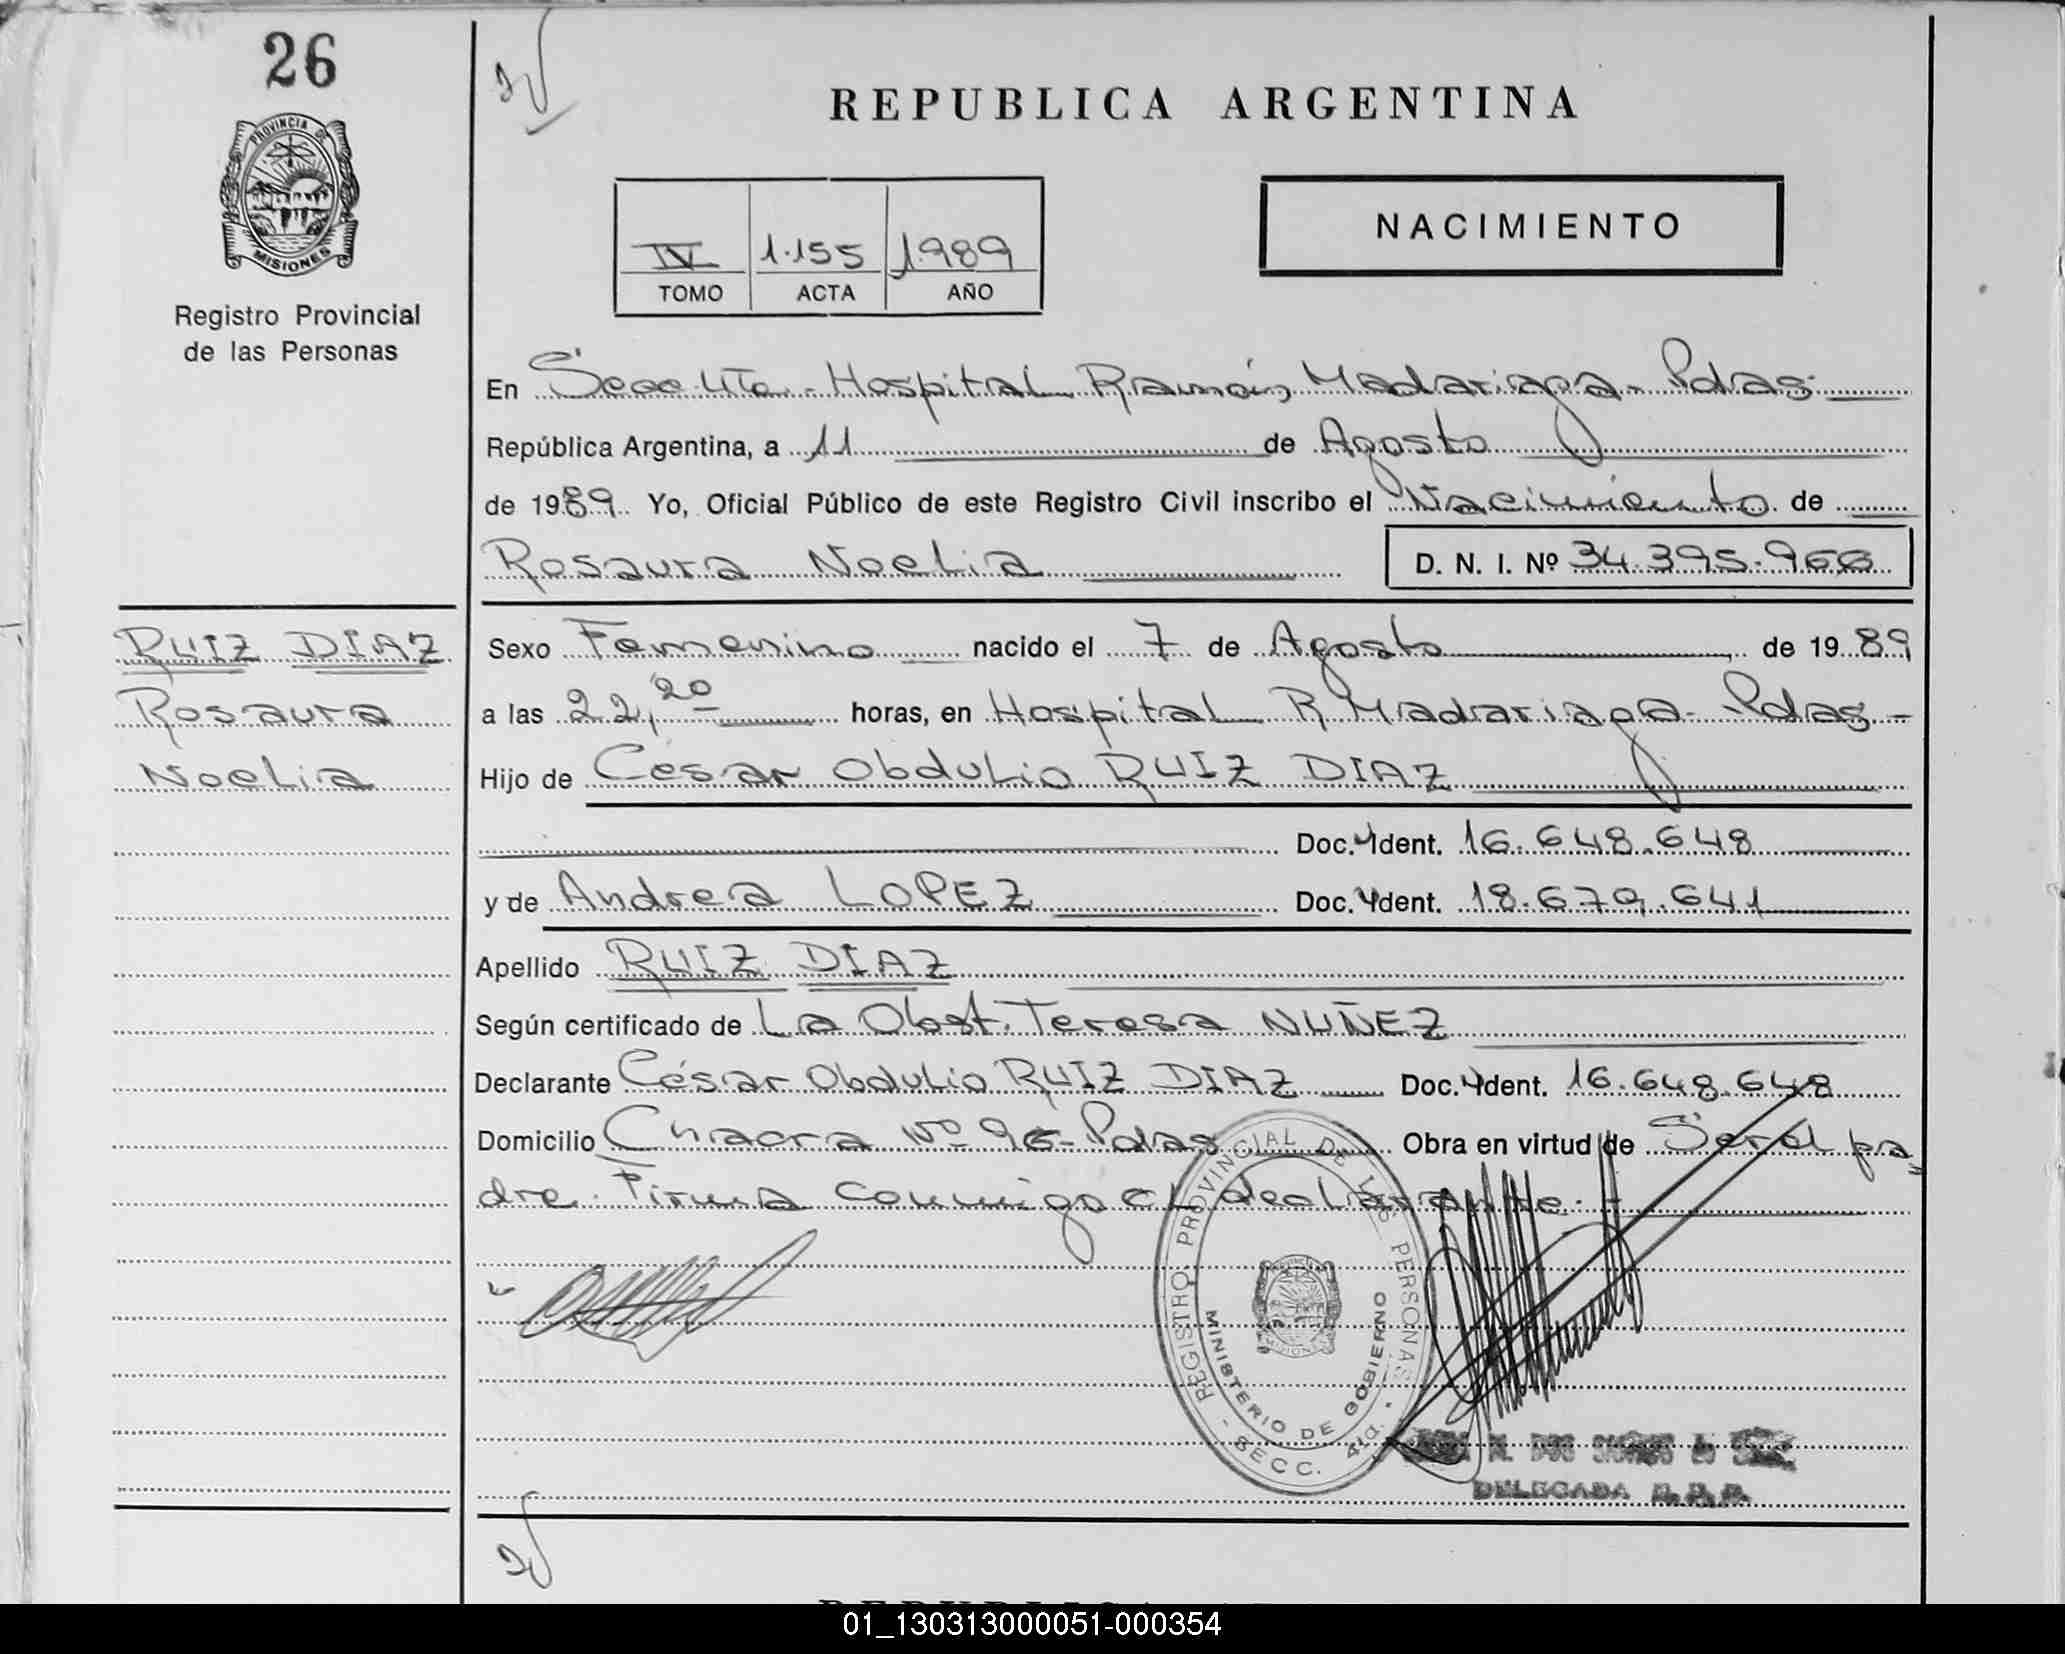 26
REPUBLICA ARGENTINA
PROVINCIA DE
MISIONES
Registro Provincial
de las Personas
NACIMIENTO
IV 1.155 1989
TOMO ACTA AÑO
En Secc 4ta - Hospital Ramón Madariaga - Pdas
República Argentina, a 11 de Agosto
de 1989 Yo, Oficial Público de este Registro Civil inscribo el Nacimiento de
Rosaura Noelia D. N. I. Nº 34.395.968
RUIZ DIAZ
Rosaura
Noelia
Sexo Femenino nacido el 7 de Agosto de 1989
a las 22,20 horas, en Hospital R Madariaga - Pdas -
Hijo de César Obdulio RUIZ DIAZ
Doc. Ident. 16.648.648
y de Andrea LOPEZ Doc. Ident. 18.679.641
Apellido RUIZ DIAZ
Según certificado de La Obst. Teresa NUÑEZ
Declarante César Obdulio RUIZ DIAZ Doc. Ident. 16.648.648
Domicilio Chacra Nº 96 - Pdas Obra en virtud de Ser el pa
dre. Firma conmigo el declarante. -
REGISTRO PROVINCIAL DE LAS PERSONAS
MINISTERIO DE GOBIERNO
SECC. 4ta.
DELEGADA R.P.P.
01_130313000051-000354